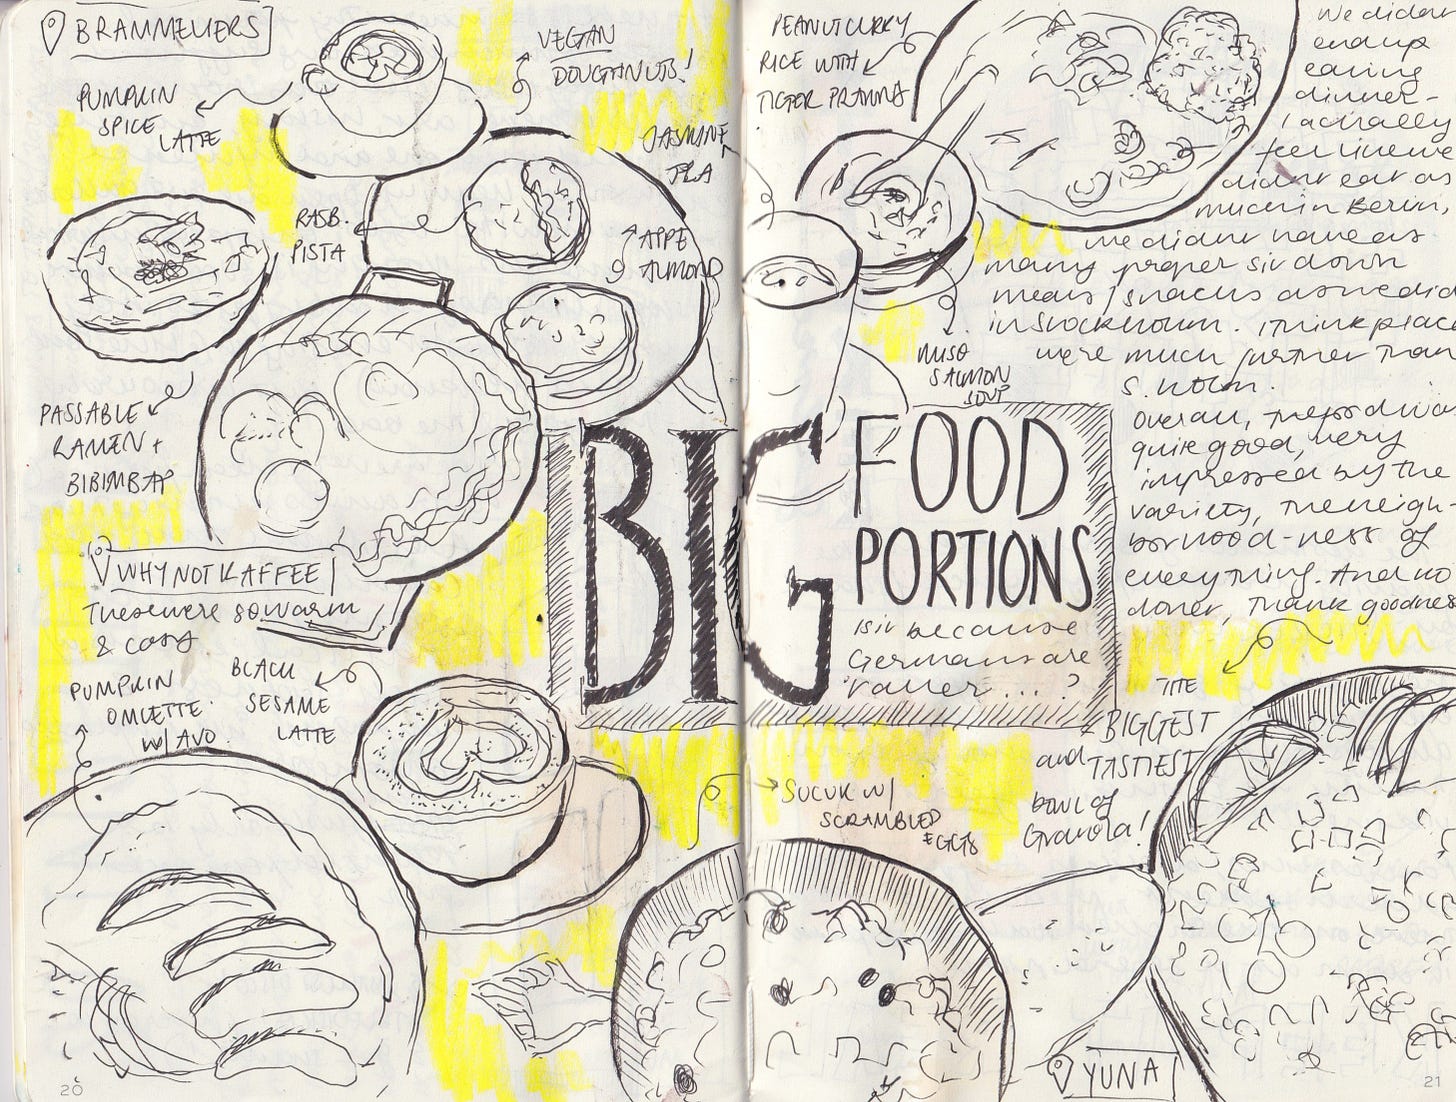 BRAMMELIERS
PUMPKIN
SPICE
LATTE
VEGAN
DOUGHNUTS!
RASB.
PISTA
JASMINE
TEA
APPE
ALMOND
PASSABLE
RAMEN +
BIBIMBAP
WHY NOT KAFFEE
These were so warm
& cosy
PUMPKIN
OMLETTE
W/ AVO
BLACK
SESAME
LATTE
20
PEANUT CURRY
RICE WITH
TIGER PRAWNS
MISO
SALMON
SOUP
BIG
FOOD
PORTIONS
is it because
Germans are
taller ... ?
We didn't
end up
eating
dinner -
I actually
feel like we
didn't eat as
much in Berlin,
we didn't have as
many proper sit down
meals / snacks as we did
in Stockholm. I think places
were much further than
S. holm.
Overall, the food was
quite good, very
impressed by the
variety, the neigh
borhood-ness of
everything. And no
doner, thank goodness
THE
BIGGEST
and TASTIEST
bowl of
Granola!
SUCUK W/
SCRAMBLED
EGGS
YUNA
21